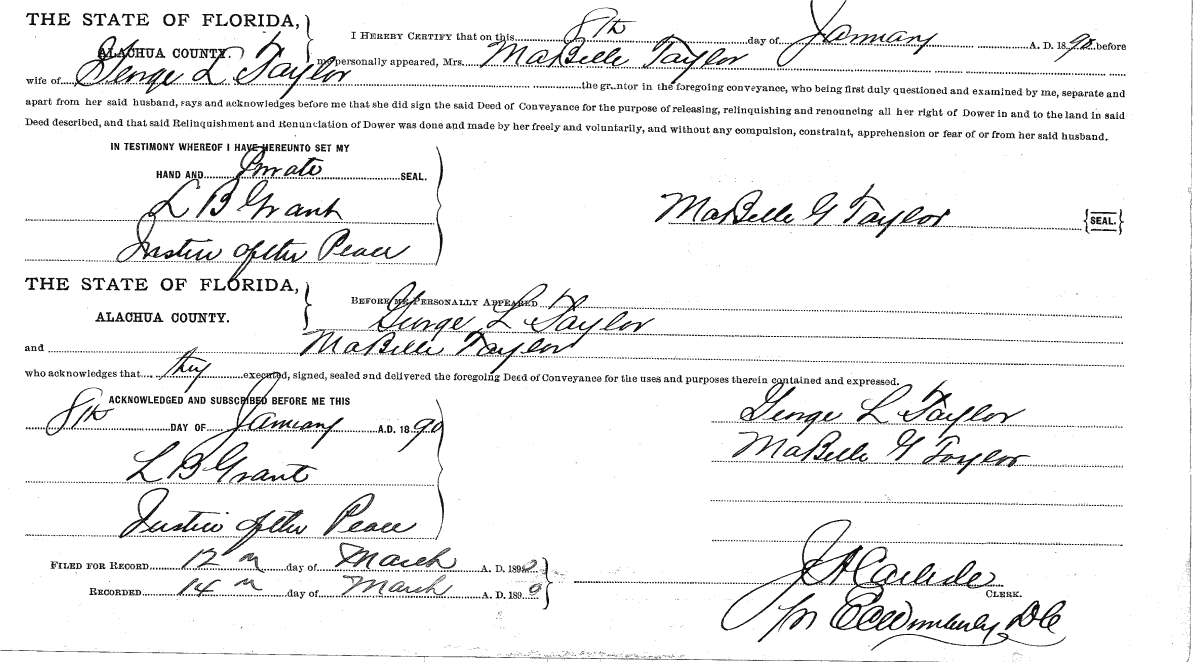 THE STATE OF FLORIDA,
ALACHUA COUNTY.
I HEREBY CERTIFY that on this 8th day of January A. D. 1890 before
me personally appeared, Mrs. MaBelle Taylor
wife of George L Taylor the grantor in the foregoing conveyance, who being first duly questioned and examined by me, separate and
apart from her said husband, says and acknowledges before me that she did sign the said Deed of Conveyance for the purpose of releasing, relinquishing and renouncing all her right of Dower in and to the land in said
Deed described, and that said Relinquishment and Renunciation of Dower was done and made by her freely and voluntarily, and without any compulsion, constraint, apprehension or fear of or from her said husband.
IN TESTIMONY WHEREOF I HAVE HEREUNTO SET MY
HAND AND Private SEAL.
L B Grant
Justice of the Peace
MaBelle G Taylor {SEAL.}
THE STATE OF FLORIDA,
ALACHUA COUNTY.
BEFORE ME PERSONALLY APPEARED
George L Taylor
and MaBelle Taylor
who acknowledges that they executed, signed, sealed and delivered the foregoing Deed of Conveyance for the uses and purposes therein contained and expressed.
ACKNOWLEDGED AND SUBSCRIBED BEFORE ME THIS
8th DAY OF January A.D. 1890
L B Grant
Justice of the Peace
George L Taylor
MaBelle G Taylor
FILED FOR RECORD 12 day of March A. D. 1890
RECORDED 14 day of March A. D. 1890
J A Carlisle
CLERK.
E C Wimberly, DC